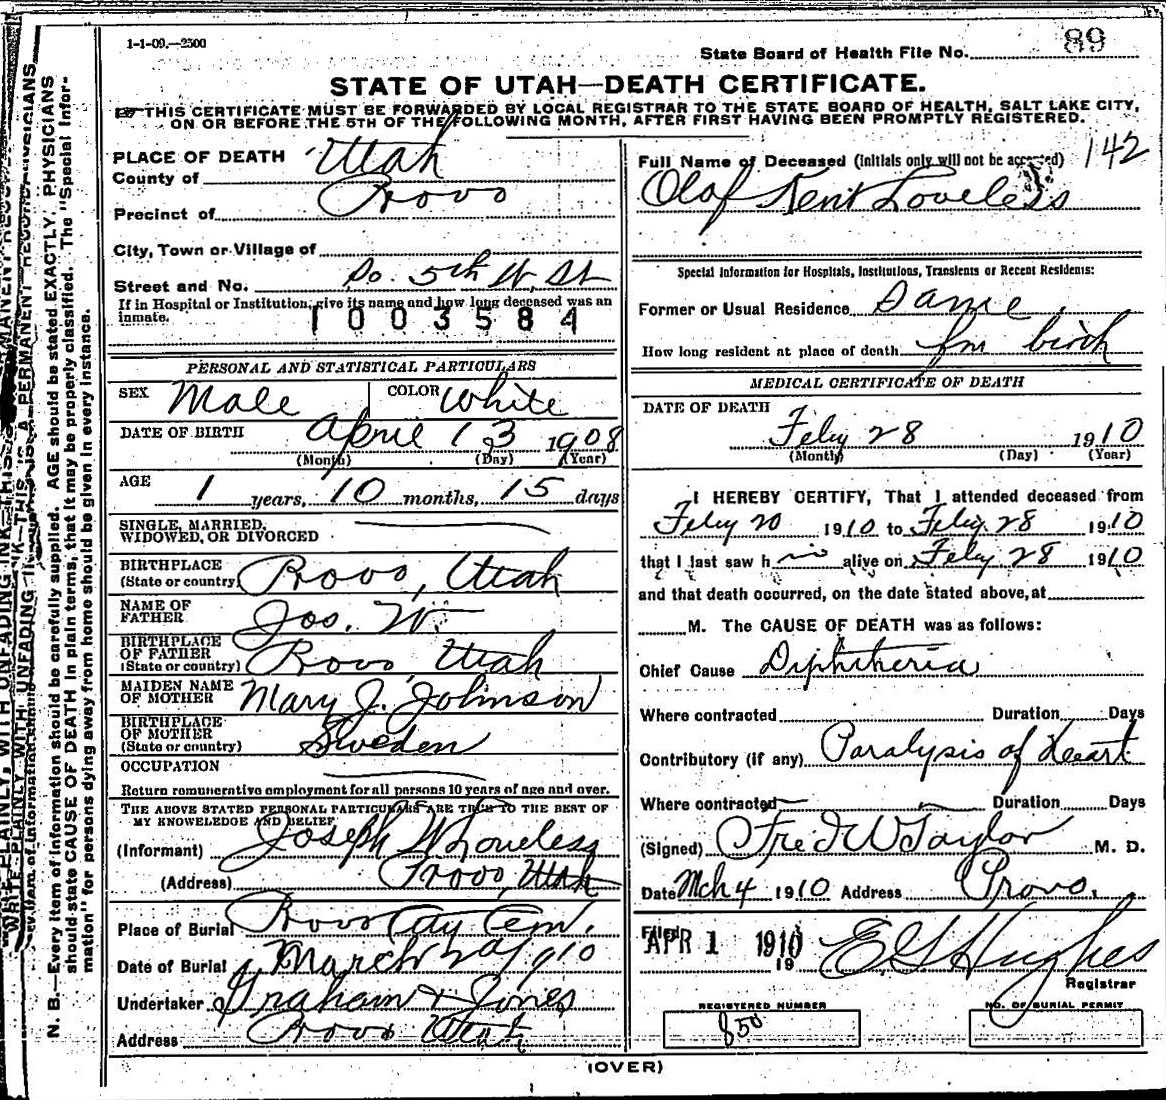 1-1-09.—2500
State Board of Health File No. 89
STATE OF UTAH—DEATH CERTIFICATE.
THIS CERTIFICATE MUST BE FORWARDED BY LOCAL REGISTRAR TO THE STATE BOARD OF HEALTH, SALT LAKE CITY,
ON OR BEFORE THE 5TH OF THE FOLLOWING MONTH, AFTER FIRST HAVING BEEN PROMPTLY REGISTERED.
PLACE OF DEATH
County of Utah
Precinct of Provo
City, Town or Village of
Street and No. So. 5th W. St
If in Hospital or Institution, give its name and how long deceased was an
inmate.
1003584
PERSONAL AND STATISTICAL PARTICULARS
SEX Male COLOR White
DATE OF BIRTH April 13 1908
(Month) (Day) (Year)
AGE 1 years, 10 months, 15 days
SINGLE, MARRIED,
WIDOWED, OR DIVORCED
BIRTHPLACE
(State or country) Provo, Utah
NAME OF
FATHER Jos. W.
BIRTHPLACE
OF FATHER
(State or country) Provo, Utah
MAIDEN NAME
OF MOTHER Mary J. Johnson
BIRTHPLACE
OF MOTHER
(State or country) Sweden
OCCUPATION
Return remunerative employment for all persons 10 years of age and over.
THE ABOVE STATED PERSONAL PARTICULARS ARE TRUE TO THE BEST OF
MY KNOWLEDGE AND BELIEF
(Informant) Joseph W Loveless
(Address) Provo, Utah
Place of Burial Provo City Cem.
Date of Burial March 2d 1910
Undertaker Graham & Jones
Address Provo Utah
142
Full Name of Deceased (Initials only will not be accepted)
Olaf Kent Loveless
Special Information for Hospitals, Institutions, Transients or Recent Residents:
Former or Usual Residence Same
How long resident at place of death fm birth
MEDICAL CERTIFICATE OF DEATH
DATE OF DEATH
Feby 28 1910
(Month) (Day) (Year)
I HEREBY CERTIFY, That I attended deceased from
Feby 20 1910 to Feby 28 1910
that I last saw h im alive on Feby 28 1910
and that death occurred, on the date stated above, at
M. The CAUSE OF DEATH was as follows:
Chief Cause Diphtheria
Where contracted Duration Days
Contributory (if any) Paralysis of Heart
Where contracted Duration Days
(Signed) Fred W Taylor M. D.
Date Mch 4 1910 Address Provo.
Filed APR 1 1910 19 E G Hughes
Registrar
REGISTERED NUMBER
850
NO. OF BURIAL PERMIT
(OVER)
WRITE PLAINLY, WITH UNFADING INK—THIS IS A PERMANENT RECORD
N. B.—Every item of information should be carefully supplied. AGE should be stated EXACTLY. PHYSICIANS
should state CAUSE OF DEATH in plain terms, that it may be properly classified. The "Special Infor-
mation" for persons dying away from home should be given in every instance.